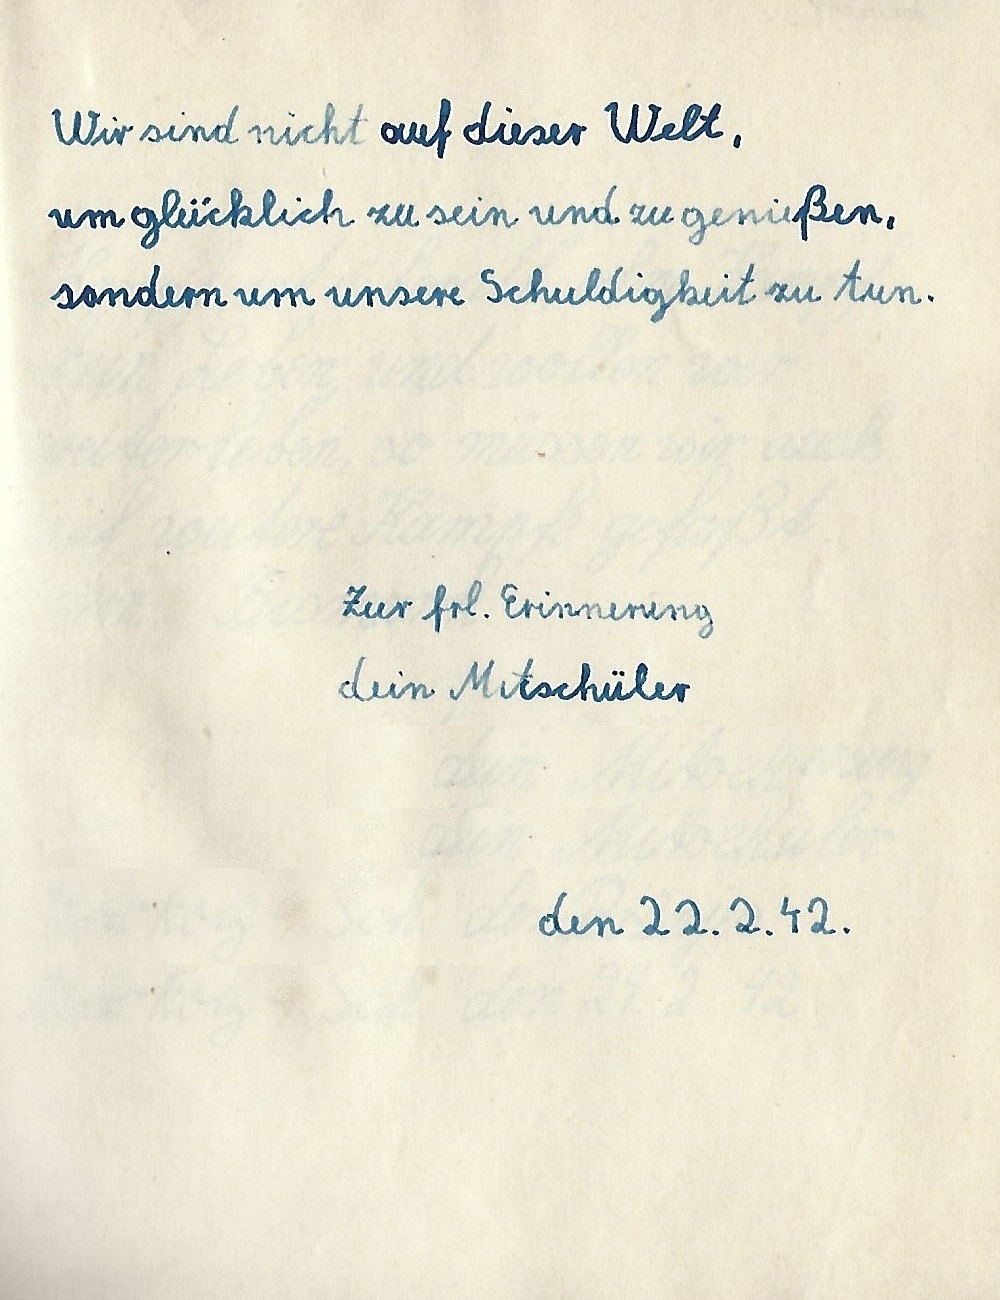 Wir sind nicht auf dieser Welt,
um glücklich zu sein und zu genießen,
sondern um unsere Schuldigkeit zu tun.
Zur frl. Erinnerung
dein Mitschüler
den 22. 2. 42.